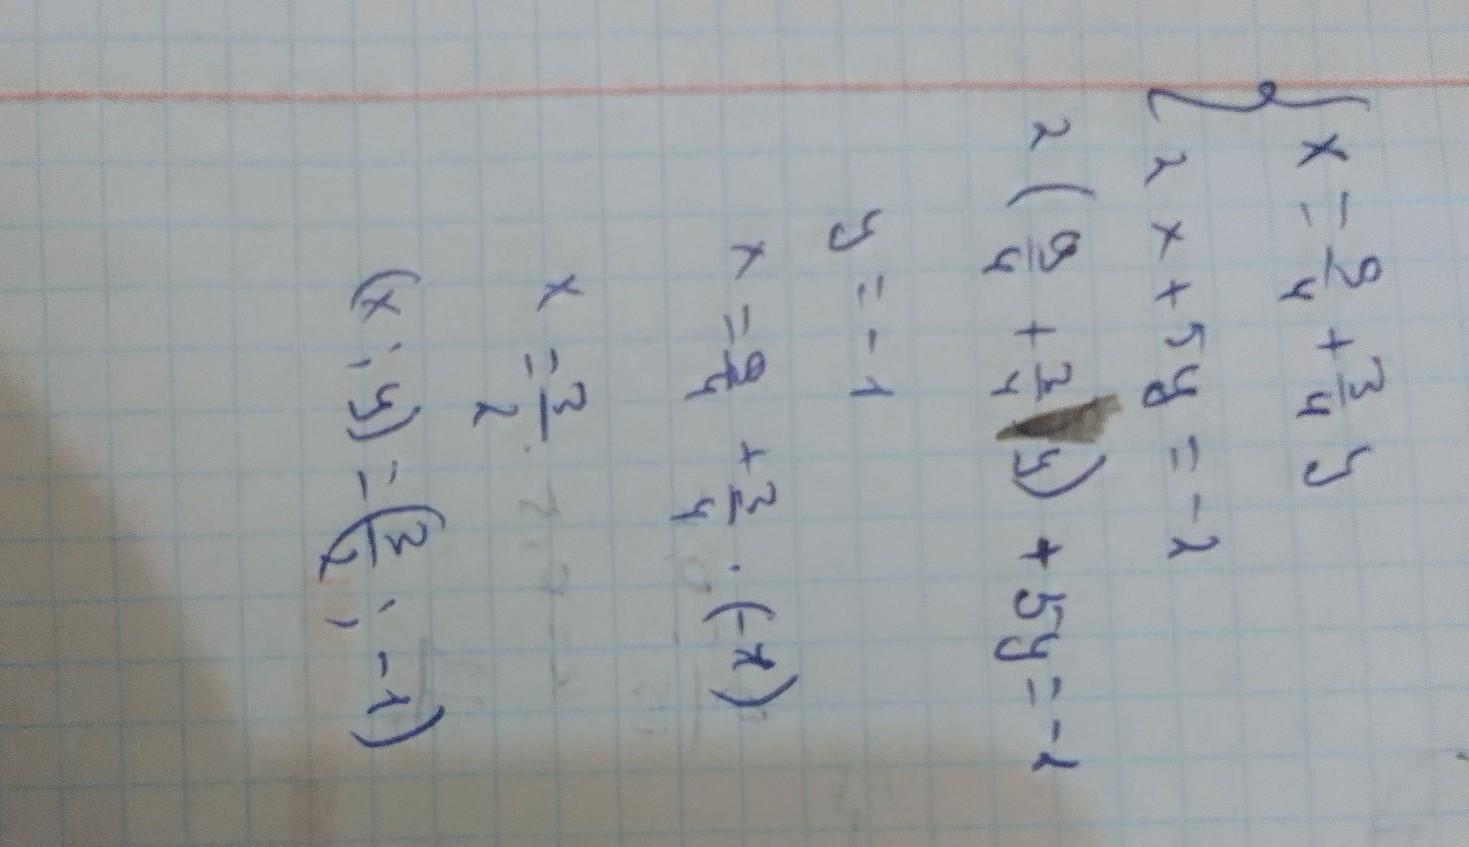 x = 9/4 + 3/4 y
2x + 5y = -2
2(9/4 + 3/4 y) + 5y = -2
y = -1
x = 9/4 + 3/4 · (-1)
x = 3/2
(x; y) = (3/2; -1)